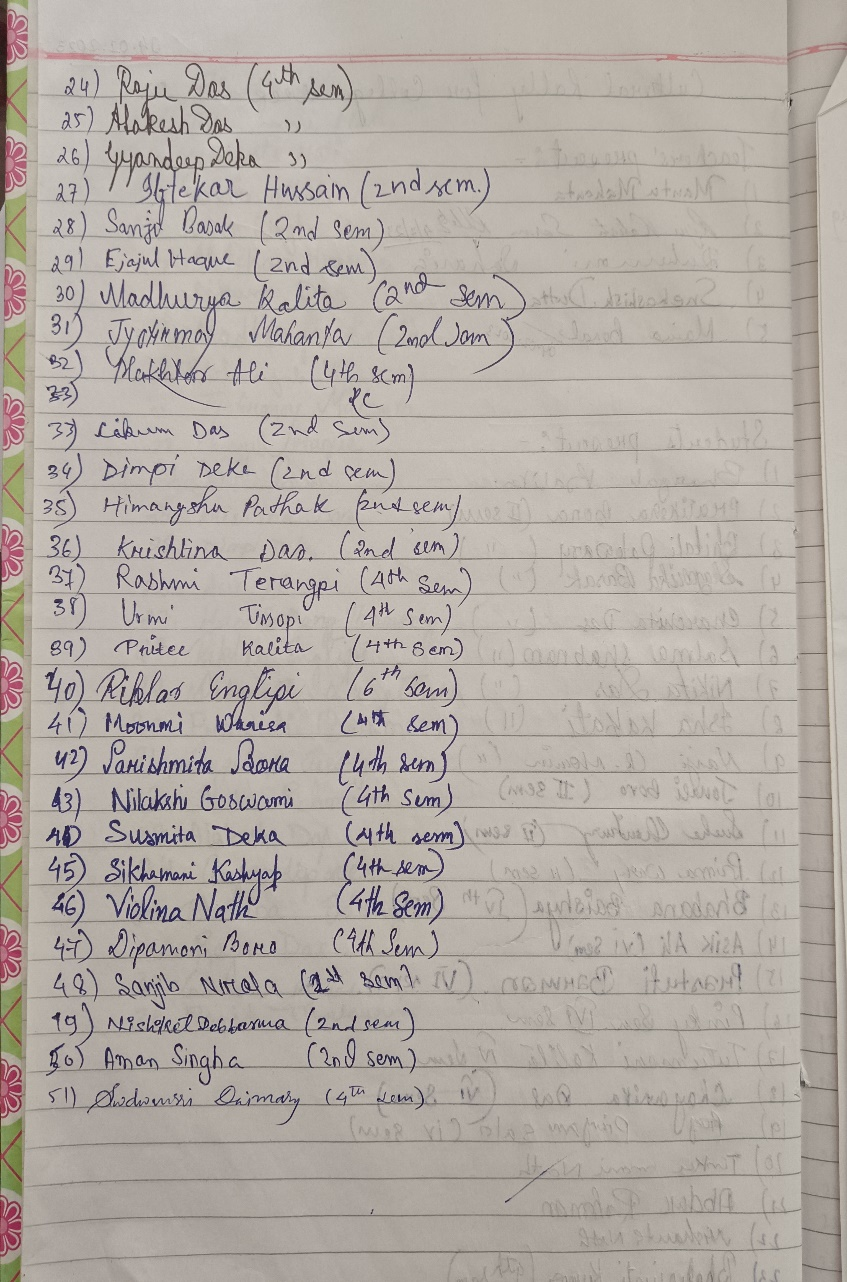 24) Raju Das (4th sem)
25) Alakesh Das ,,
26) Gyandeep Deka ,,
27) Iftekar Hussain (2nd sem.)
28) Sanju Basak (2nd sem)
29) Ejajul Haque (2nd sem)
30) Madhurya Kalita (2nd sem)
31) Jyotirmoy Mahanta (2nd sem)
32) Ali (4th sem)
33)
33) Das (2nd Sem)
34) Dimpi Deka (2nd sem)
35) Himangshu Pathak (2nd sem)
36) Krishtina Das. (2nd sem)
37) Rashmi Terangpi (4th Sem)
38) Urmi Timopi (4th Sem)
39) Pritee Kalita (4th Sem)
40) Riklar Englipi (6th Sem)
41) Moonmi (4th sem)
42) Parishmita Bora (4th sem)
43) Nilakshi Goswami (4th Sem)
44) Susmita Deka (4th sem)
45) Sikhamani Kashyap (4th sem)
46) Violina Nath (4th Sem)
47) Dipamoni Boro (4th Sem)
48) Sanjib (2nd sem)
49) Debbarma (2nd sem)
50) Aman Singha (2nd sem)
51) Daimary (4th sem)